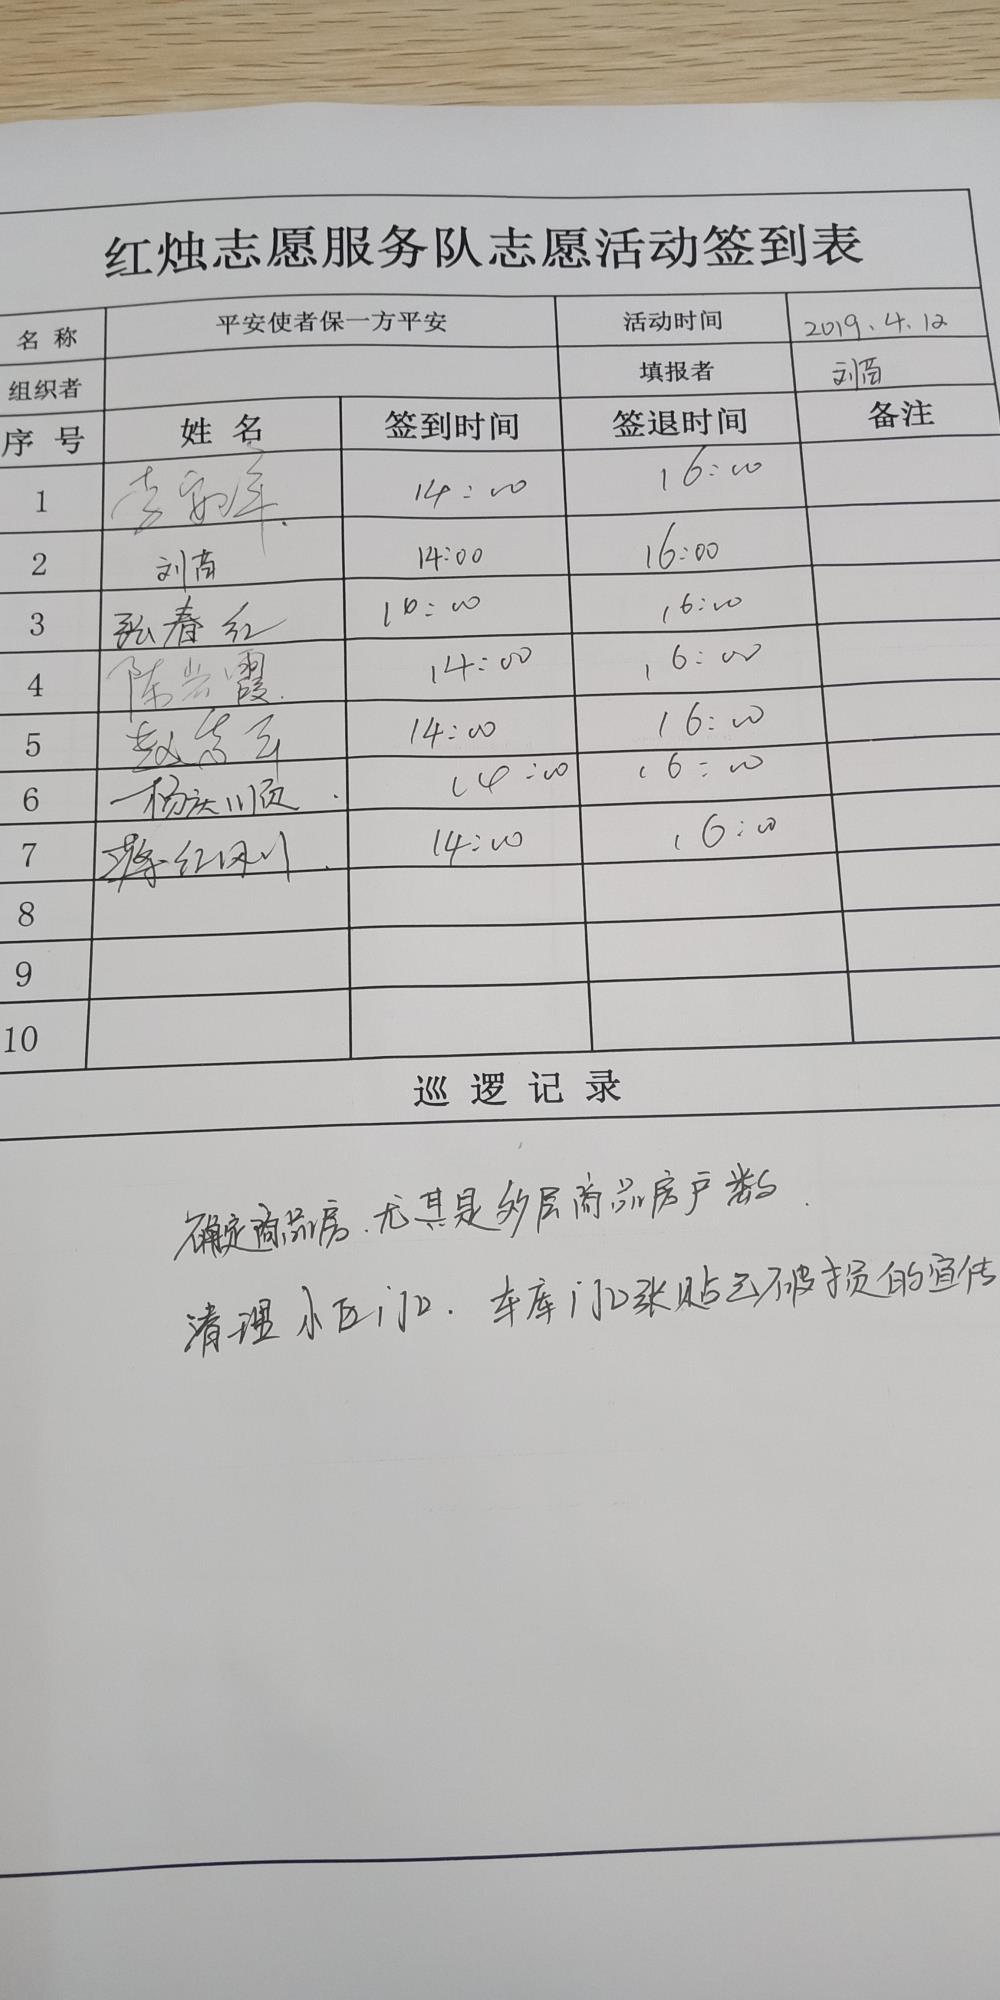 红烛志愿服务队志愿活动签到表
名称 平安使者保一方平安 活动时间 2019.4.12
组织者 填报者 刘
序号 姓名 签到时间 签退时间 备注
1 李 14:00 16:00
2 刘 14:00 16:00
3 张春红 16:00
4 陈 霞 14:00 16:00
5 赵 14:00 16:00
6 杨庆顺 14:00 16:00
7 红 14:00 16:00
8
9
10
巡逻记录
确定商品房、尤其是多层商品房户数.
清理小区门口.车库门口张贴已破损的宣传